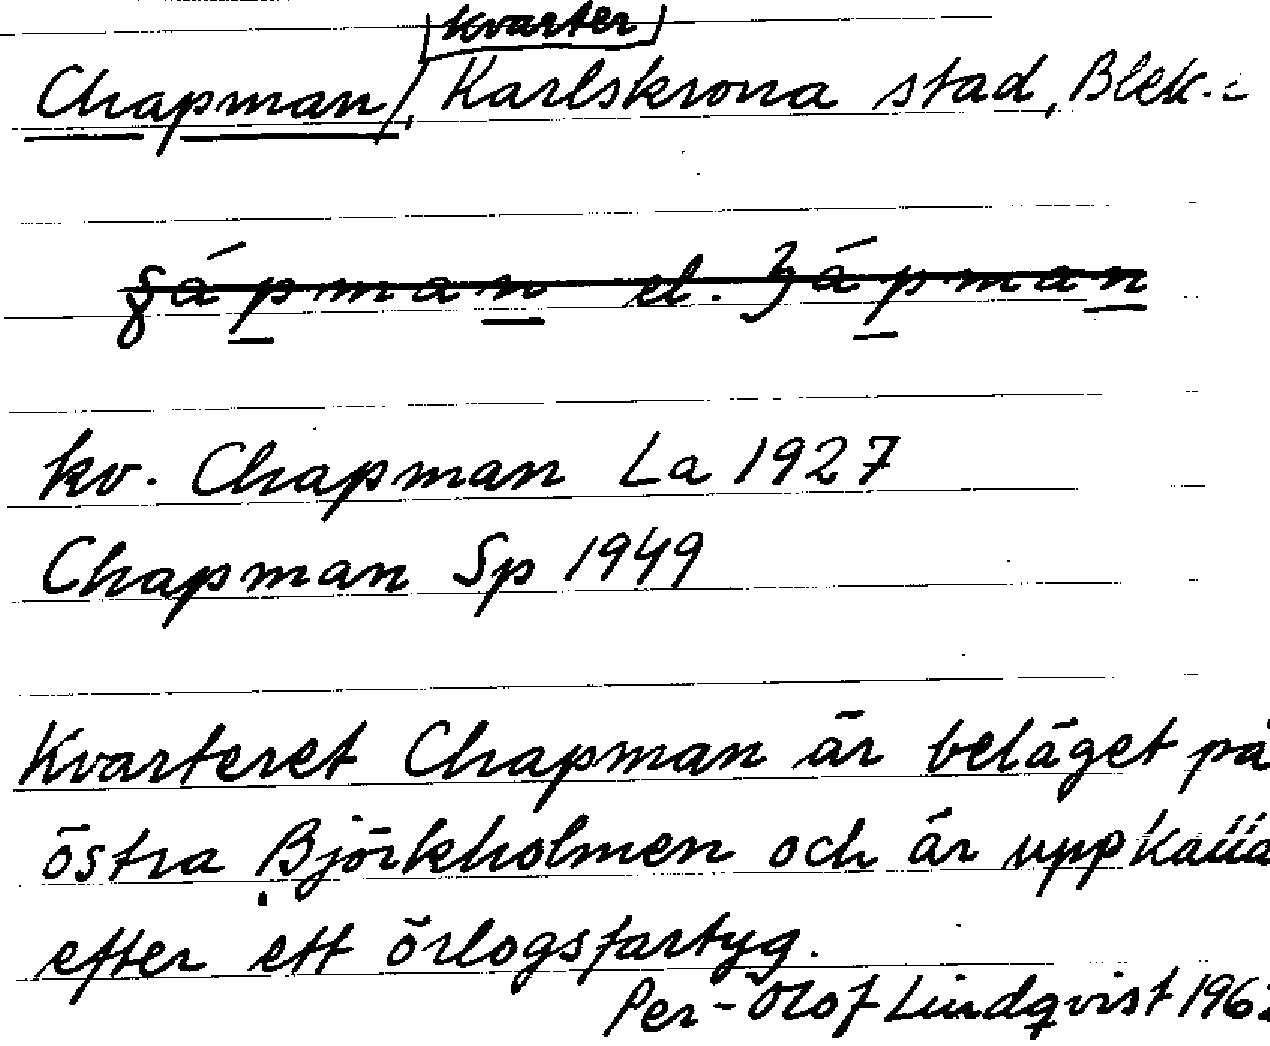 kvarter
Chapman, Karlskrona stad, Blek.
el.
kv. Chapman La 1927
Chapman Sp 1949
Kvarteret Chapman är beläget på
östra Björkholmen och är uppkalla
efter ett örlogsfartyg.
Per-Olof Lindqvist